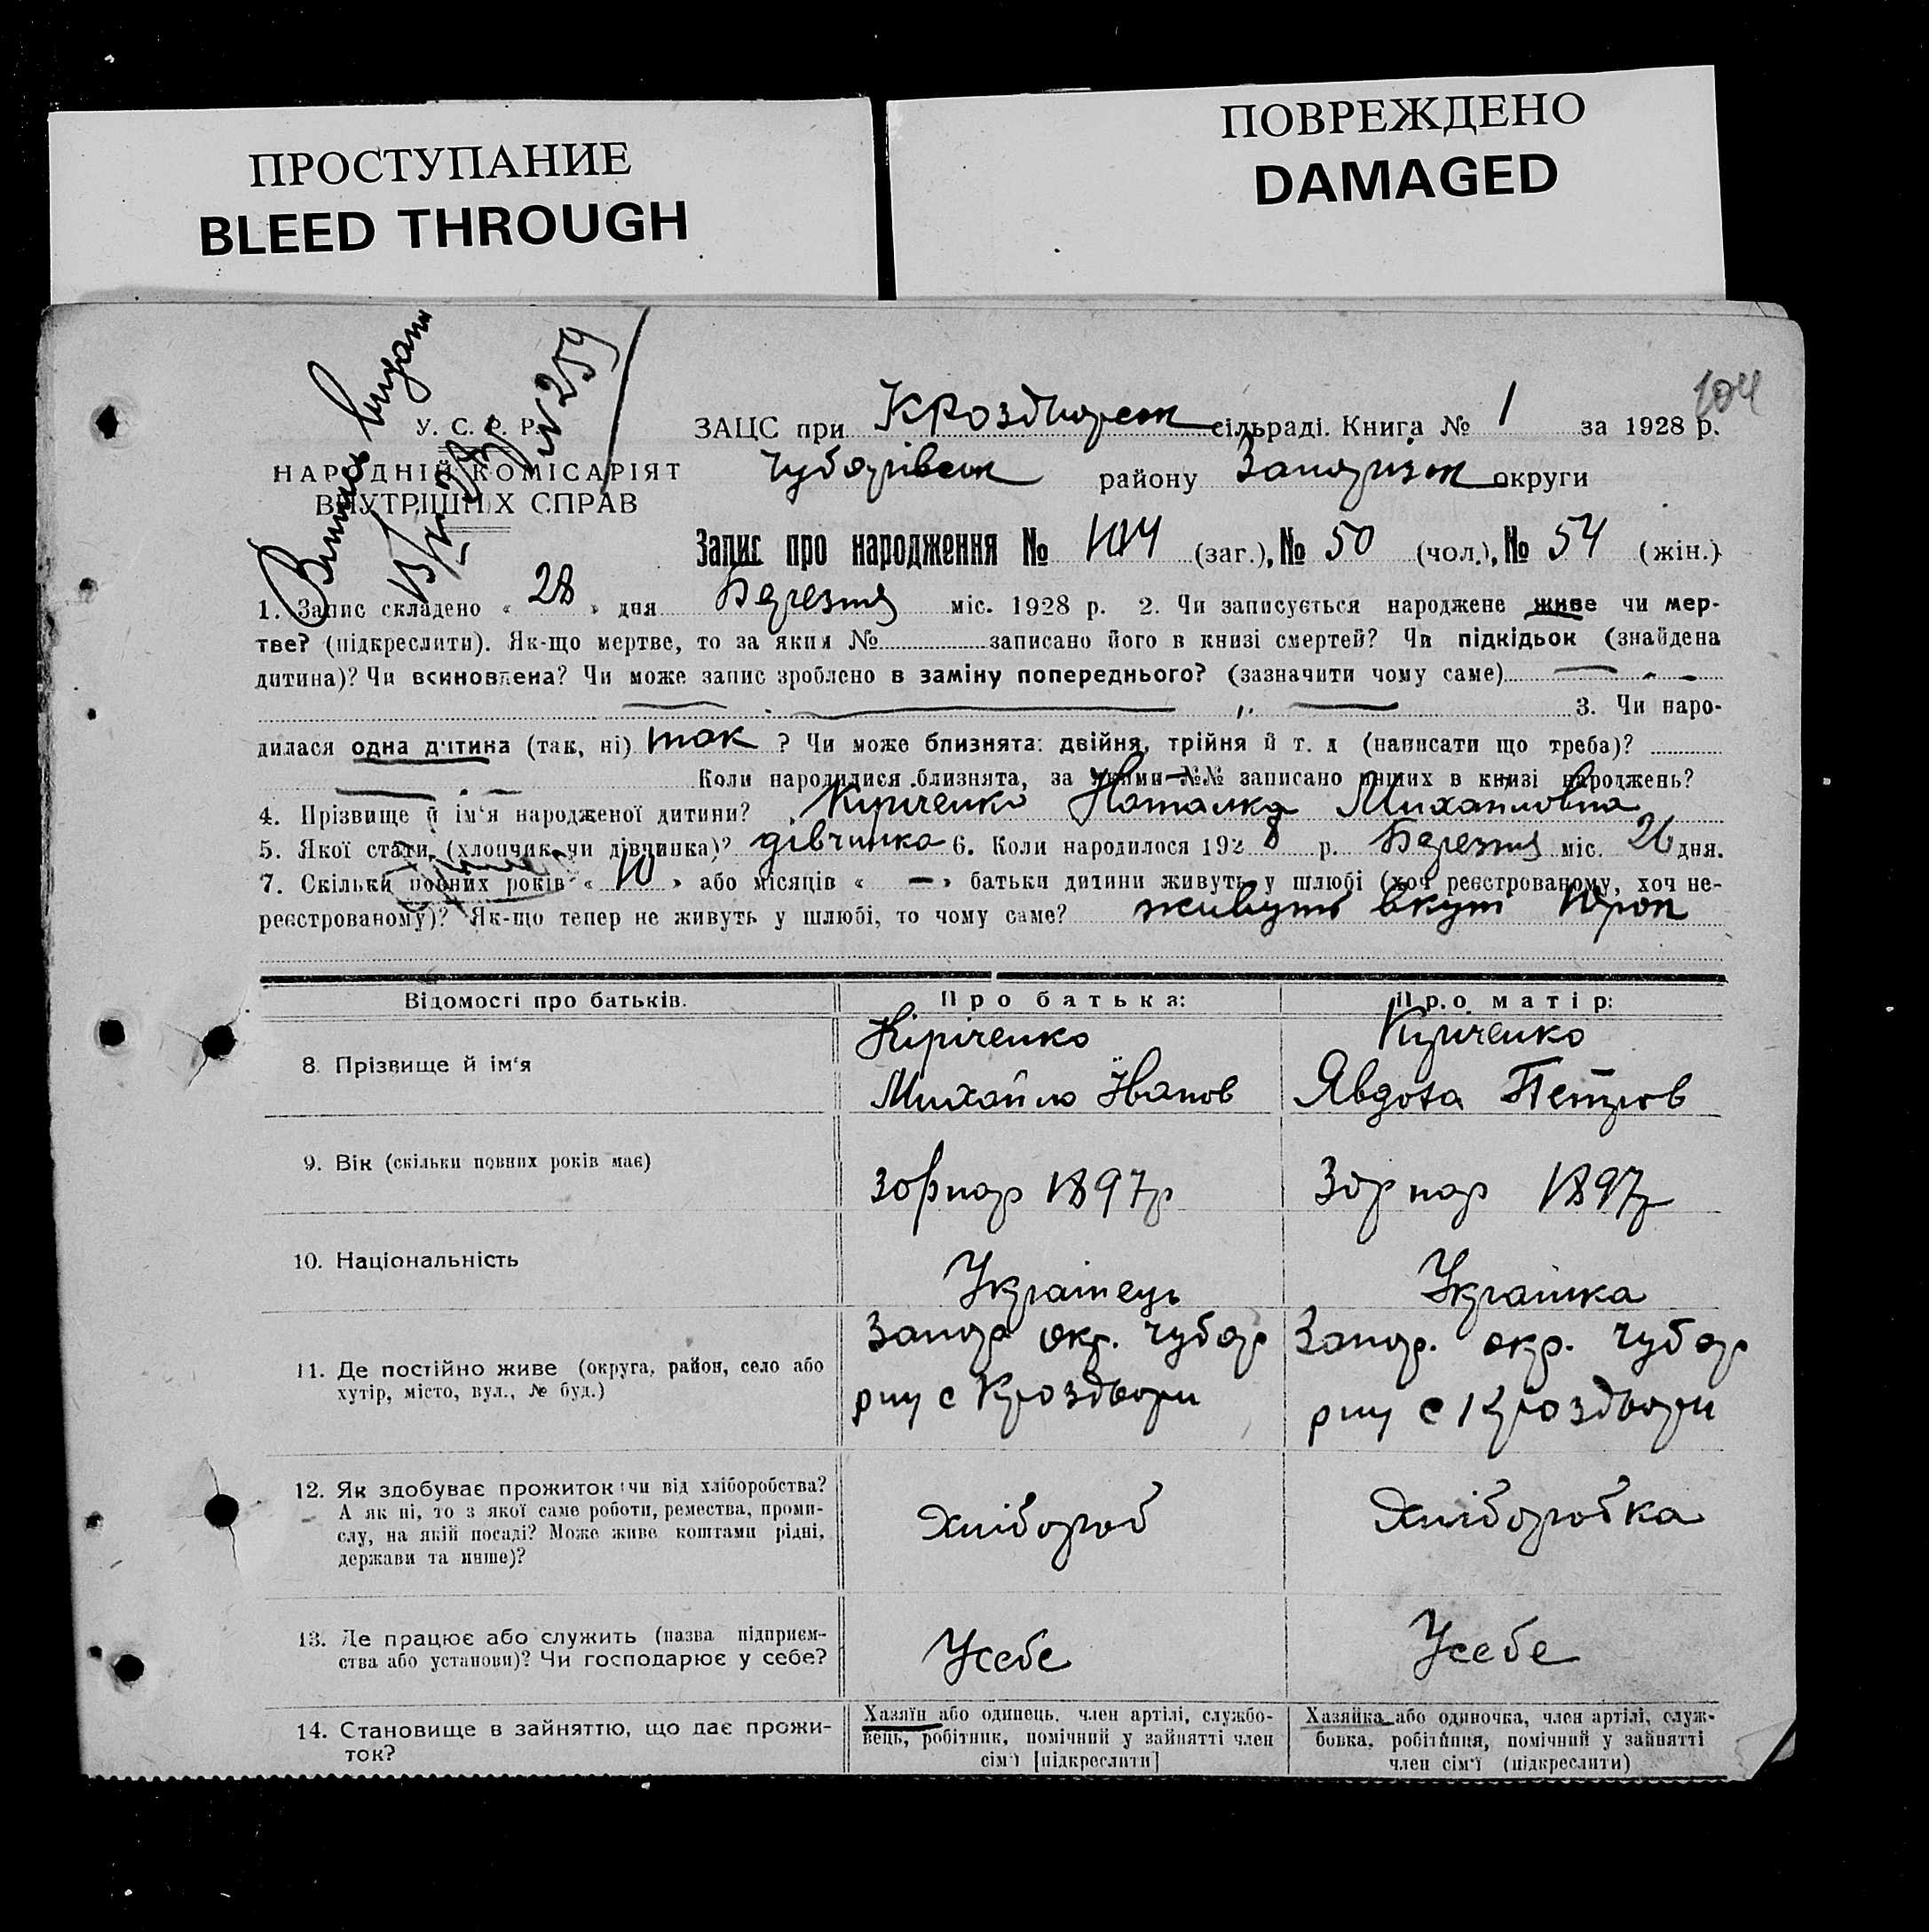 ПРОСТУПАНИЕ
BLEED THROUGH
ПОВРЕЖДЕНО
DAMAGED
видани
№ 259
104
У. С. Р. Р.
НАРОДНІЙ КОМІСАРІЯТ
ВНУТРІШНІХ СПРАВ
ЗАЦС при Кроздворск сільраді. Книга № 1 за 1928 р.
Чубарівськ району Запоріжж округи
Запис про народження № 104 (заг.), № 50 (чол.), № 54 (жін.)
1. Запис складено « 28 » дня Березня міс. 1928 р. 2. Чи записується народжене живе чи мер-
тве? (підкреслити). Як-що мертве, то за яким № записано його в книзі смертей? Чи підкідьок (знайдена
дитина)? Чи всиновлена? Чи може запис зроблено в заміну попереднього? (зазначити чому саме)
3. Чи наро-
дилася одна дитина (так, ні) так ? Чи може близнята: двійня, трійня й т. д (написати що треба)?
Коли народилися близнята, за якими №№ записано инших в книзі народжень?
4. Прізвище й ім'я народженої дитини? Киріченко Наталка Михайловна
5. Якої стати (хлопчик чи дівчинка)? дівчинка 6. Коли народилося 1928 р. Березня міс. 26 дня.
7. Скільки повних років « 10 » або місяців « — » батьки дитини живуть у шлюбі (хоч реєстрованому, хоч не-
реєстрованому)? Як-що тепер не живуть у шлюбі, то чому саме? живуть вкупі 10 рок
Відомості про батьків.
Про батька:
Про матір:
8. Прізвище й ім'я
Кіріченко
Михайло Іванов
Киріченко
Явдоха Петров
9. Вік (скільки повних років має)
30р нар 1897р
30р нар 1897р
10. Національність
Українець
Українка
11. Де постійно живе (округа, район, село або
хутір, місто, вул., № буд.)
Запор окр. Чубар
рну с Кроздвори
Запор. окр. Чубар
рну с Кроздвори
12. Як здобуває прожиток: чи від хліборобства?
А як ні, то з якої саме роботи, ремества, проми-
слу, на якій посаді? Може живе коштами рідні,
держави та инше)?
Хлібороб
Хліборобка
13. Де працює або служить (назва підприєм-
ства або установи)? Чи господарює у себе?
Усебе
Усебе
14. Становище в зайняттю, що дає прожи-
ток?
Хазяїн або одинець, член артілі, службо-
вець, робітник, помічний у зайнятті член
сім'ї [підкреслити]
Хазяйка або одиночка, член артілі, служ-
бовка, робітниця, помічний у зайнятті
член сім'ї (підкреслити)